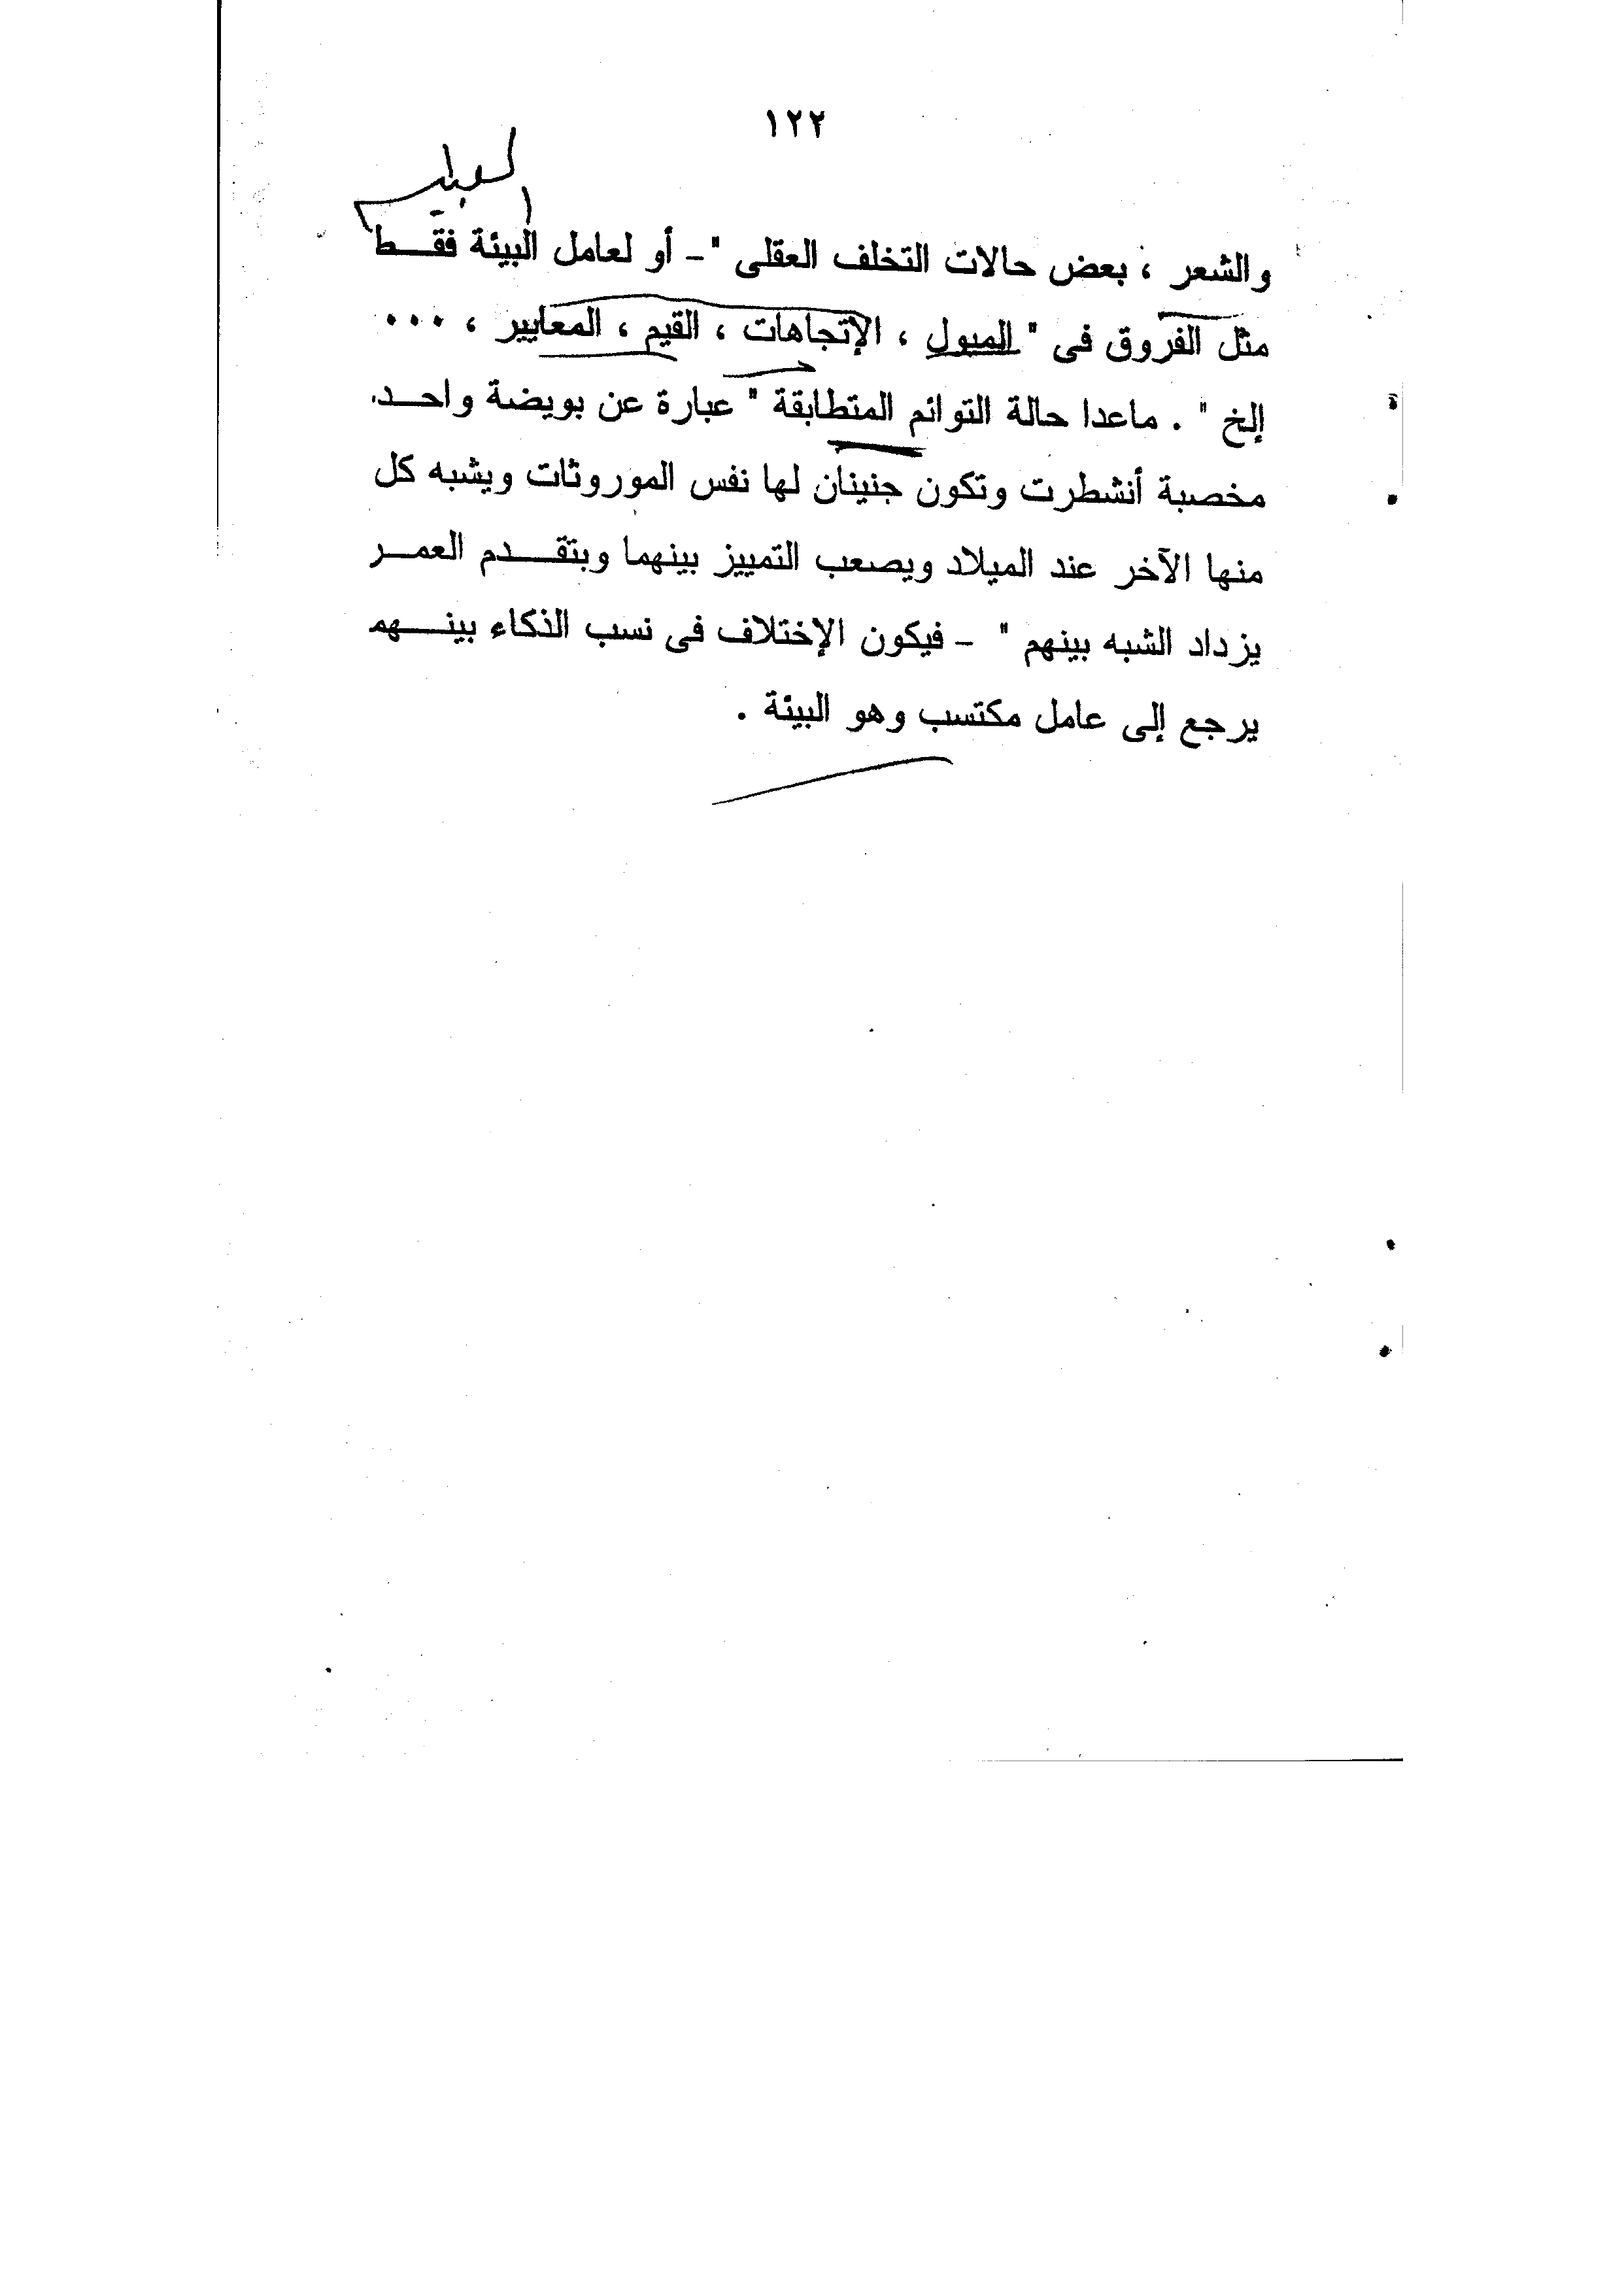 ١٢٢
والشعر ، بعض حالات التخلف العقلى "- أو لعامل البيئة فقـــط
مثل الفروق فى " الميول ، الإتجاهات ، القيم ، المعايير ، ...
إلخ " . ماعدا حالة التوائم المتطابقة " عبارة عن بويضة واحـــد
مخصبة أنشطرت وتكون جنينان لها نفس الموروثات ويشبه كل
منها الآخر عند الميلاد ويصعب التمييز بينهما وبتقـــدم العمـــر
يزداد الشبه بينهم " - فيكون الإختلاف فى نسب الذكاء بينــــهم
يرجع إلى عامل مكتسب وهو البيئة .